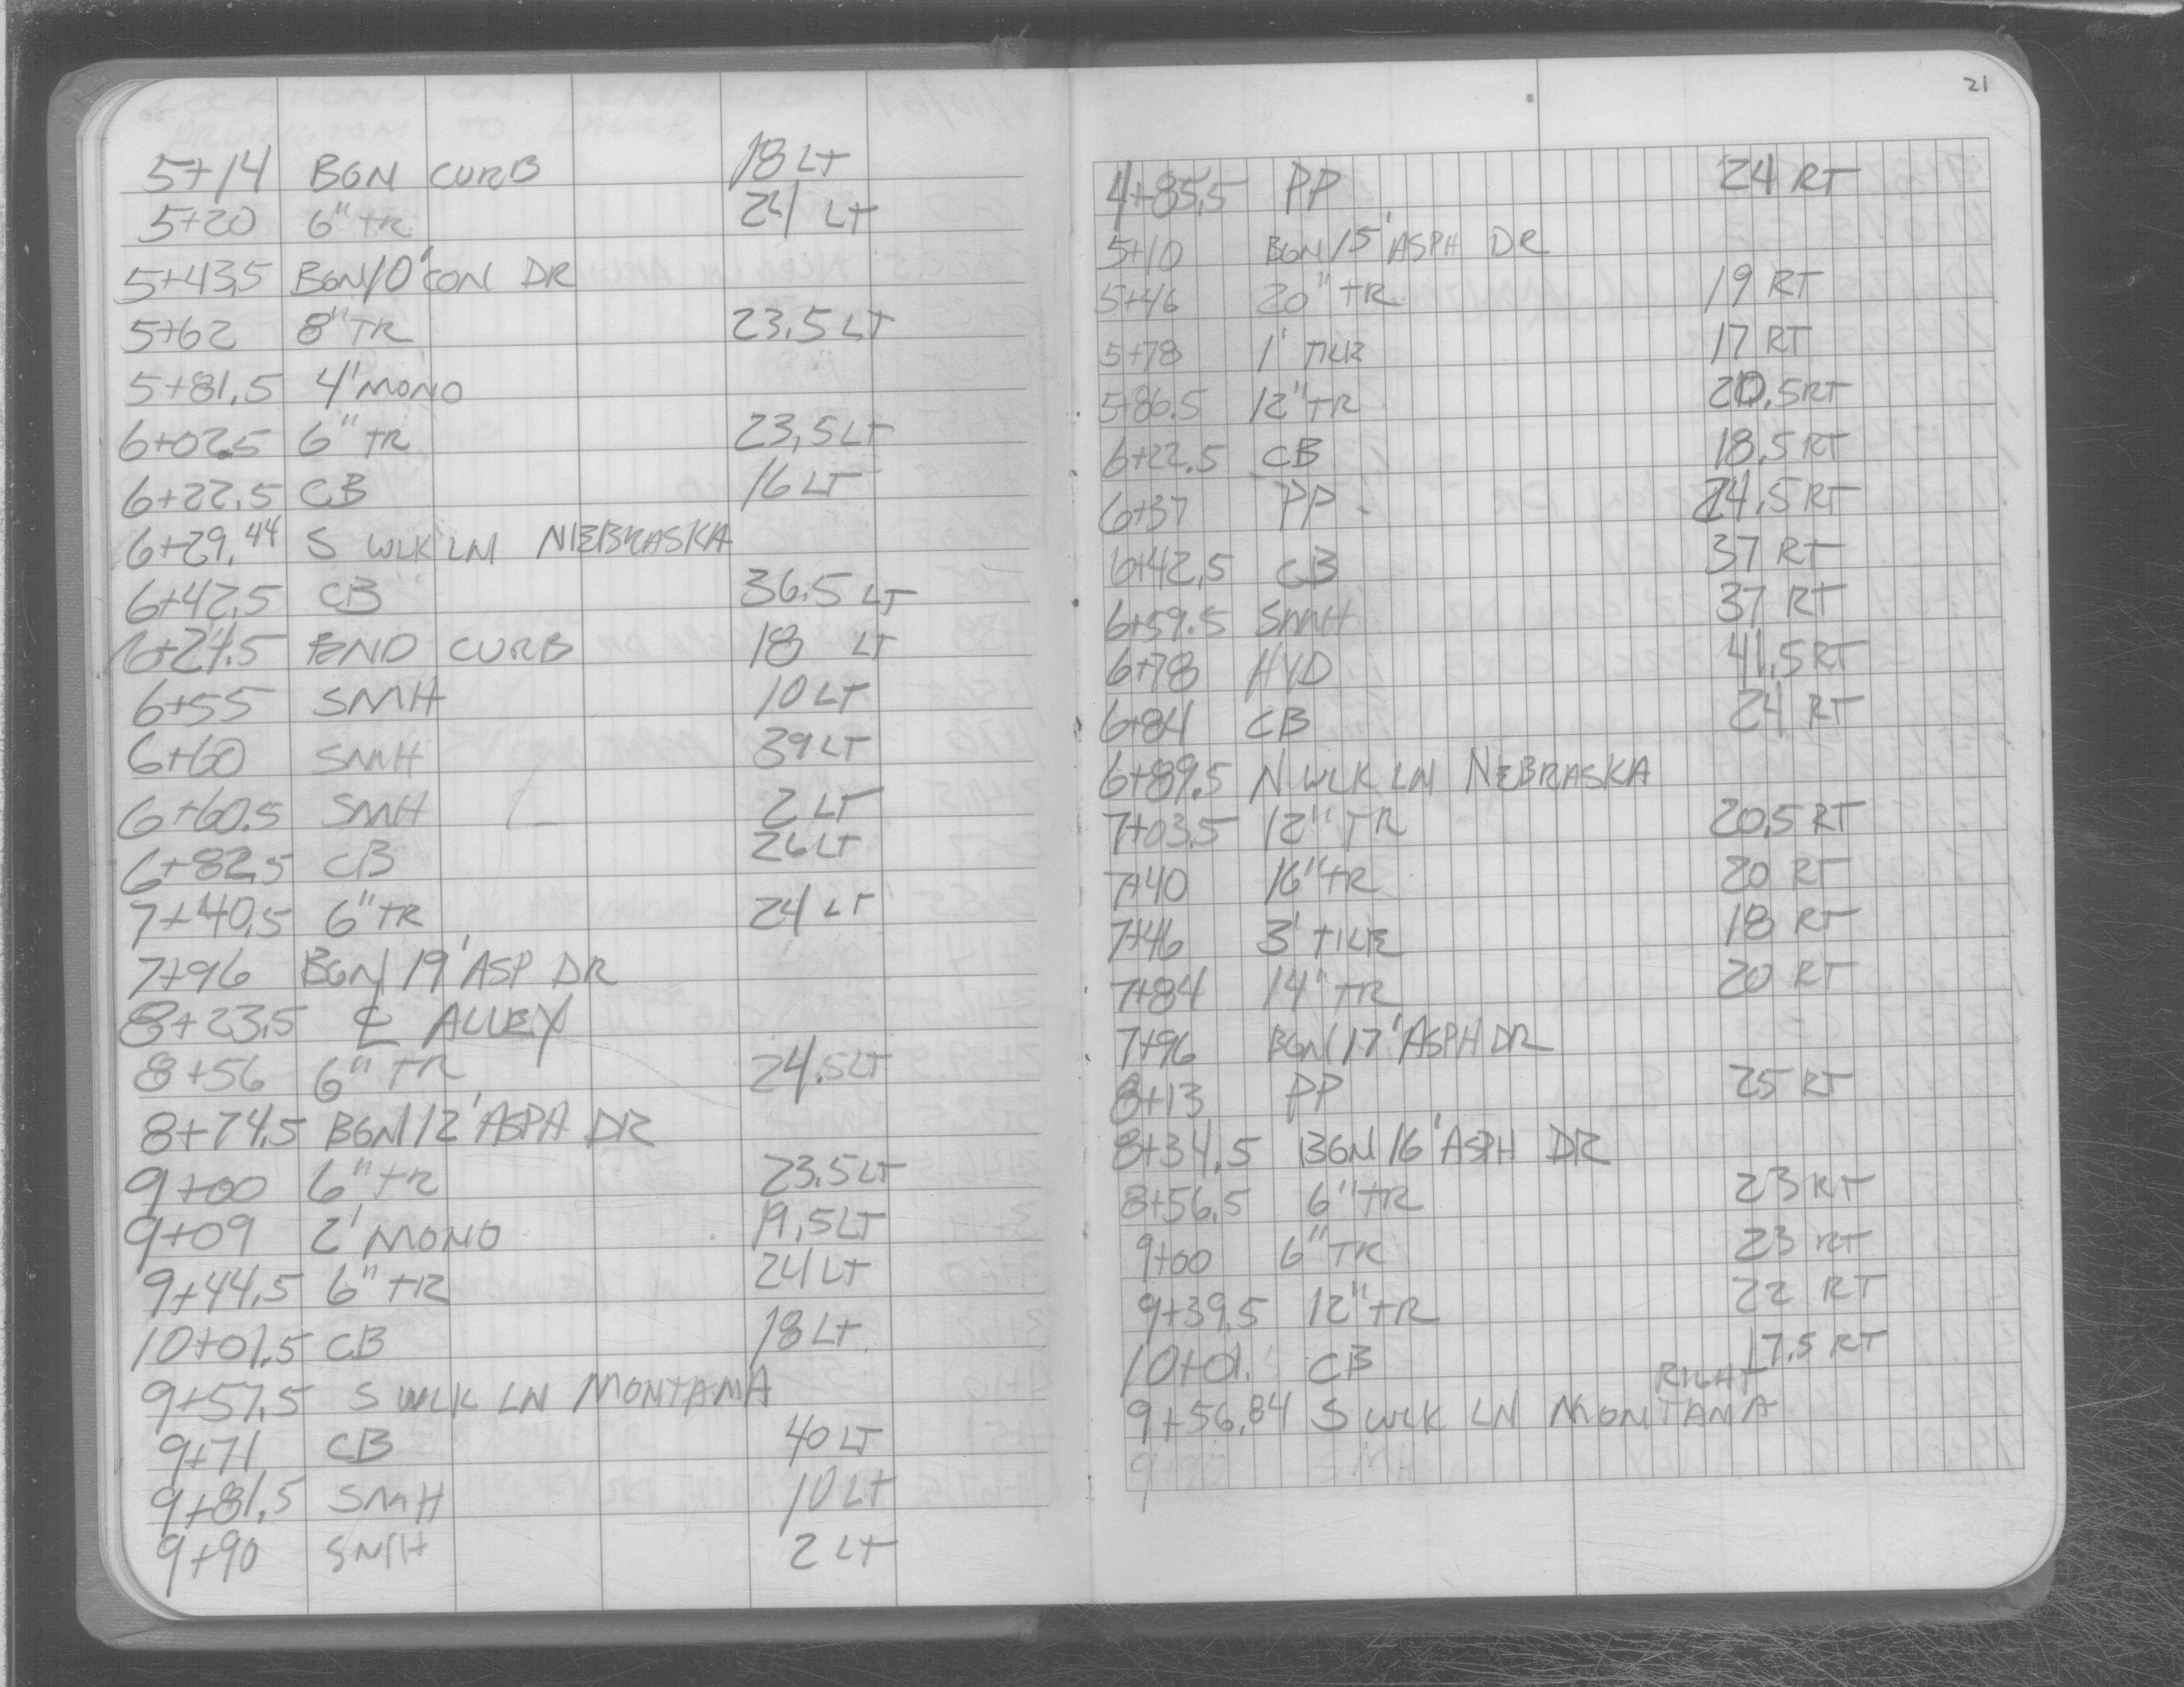 5+14 BGN CURB 18 LT
5+20 6" TR 24 LT
5+43.5 BGN 10' CON DR
5+62 8" TR 23.5 LT
5+81.5 4' MONO
6+02.5 6" TR 23.5 LT
6+22.5 CB 16 LT
6+29.44 S WLK LN NEBRASKA
6+42.5 CB 36.5 LT
6+24.5 END CURB 18 LT
6+55 SMH 10 LT
6+60 SMH 39 LT
6+60.5 SMH 2 LT
6+82.5 CB 26 LT
7+40.5 6" TR 24 LT
7+96 BGN 19' ASP DR
8+23.5 ℄ ALLEY
8+56 6" TR 24.5 LT
8+74.5 BGN 12' ASPH DR
9+00 6" TR 23.5 LT
9+09 2' MONO 19.5 LT
9+44.5 6" TR 24 LT
10+01.5 CB 18 LT
9+57.5 S WLK LN MONTANA
9+71 CB 40 LT
9+81.5 SMH 10 LT
9+90 SMH 2 LT
21
4+85.5 PP 24 RT
5+10 BGN 15' ASPH DR
5+46 20" TR 19 RT
5+78 1' 17 RT
5+86.5 12" TR 20.5 RT
6+22.5 CB 18.5 RT
6+37 PP 24.5 RT
6+42.5 CB 37 RT
6+59.5 SMH 37 RT
6+78 HYD 41.5 RT
6+84 CB 24 RT
6+89.5 N WLK LN NEBRASKA
7+03.5 12" TR 20.5 RT
7+40 16" TR 20 RT
7+46 3' 18 RT
7+84 14" TR 20 RT
7+96 BGN 17' ASPH DR
8+13 PP 25 RT
8+34.5 BGN 16' ASPH DR
8+56.5 6" TR 23 RT
9+00 6" TR 23 RT
9+39.5 12" TR 22 RT
10+01. CB 17.5 RT
RIGHT
9+56.84 S WLK LN MONTANA